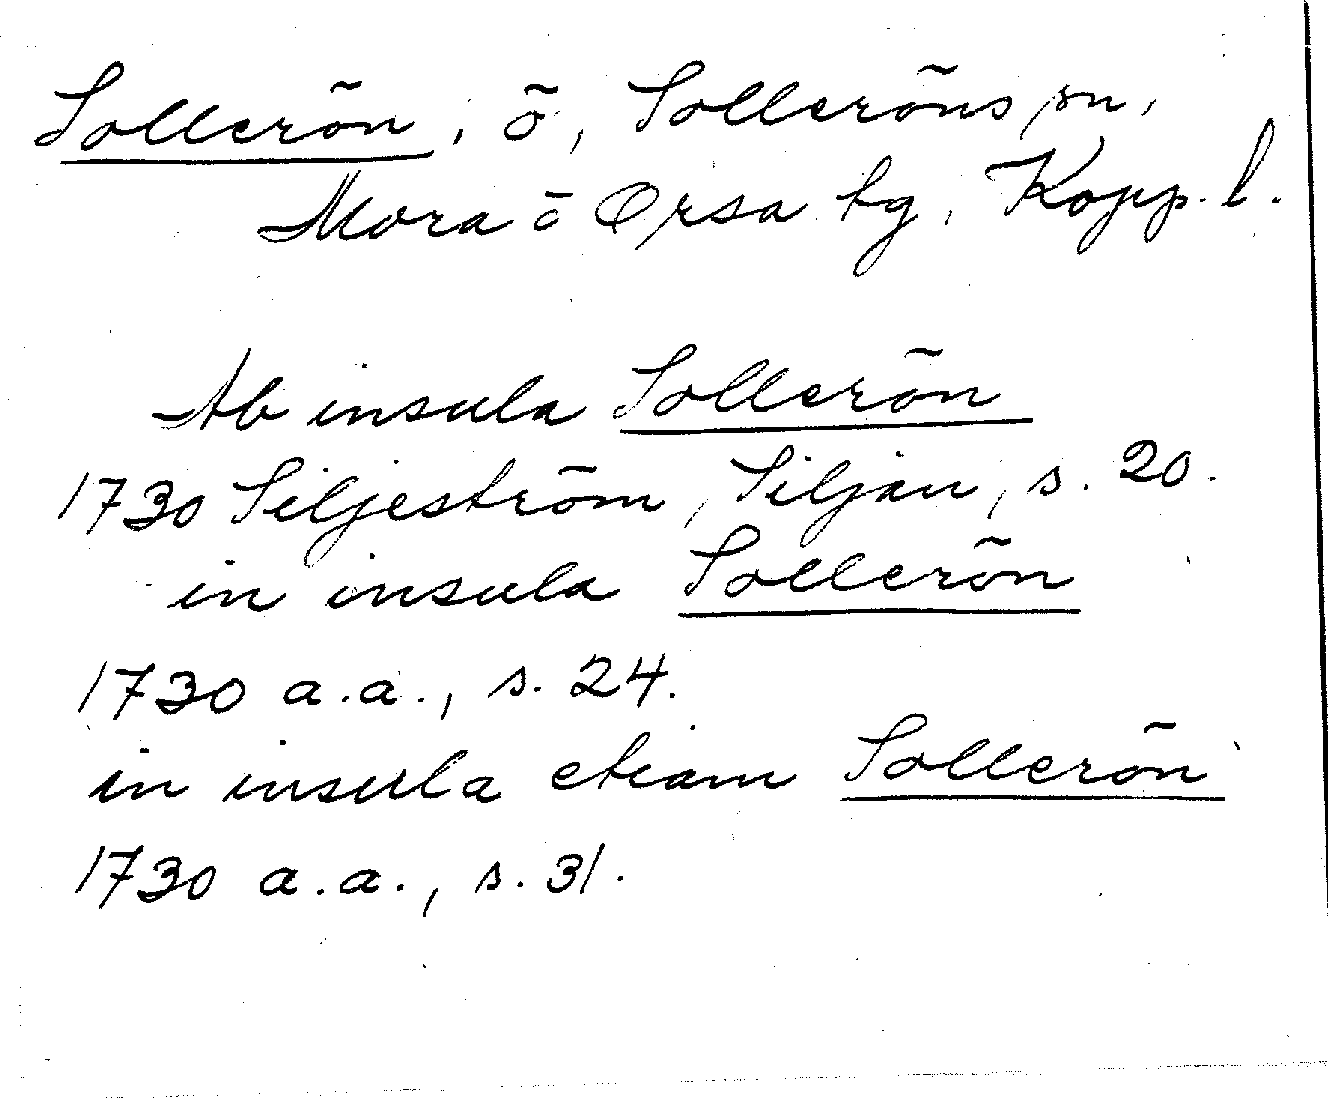 Sollerön, ö, Solleröns sn,
Mora o Orsa tg, Kopp. l.
Ab insula Sollerön
1730 Siljeström, Siljan, s. 20.
in insula Sollerön
1730 a.a., s. 24.
in insula etiam Sollerön
1730 a.a., s. 31.